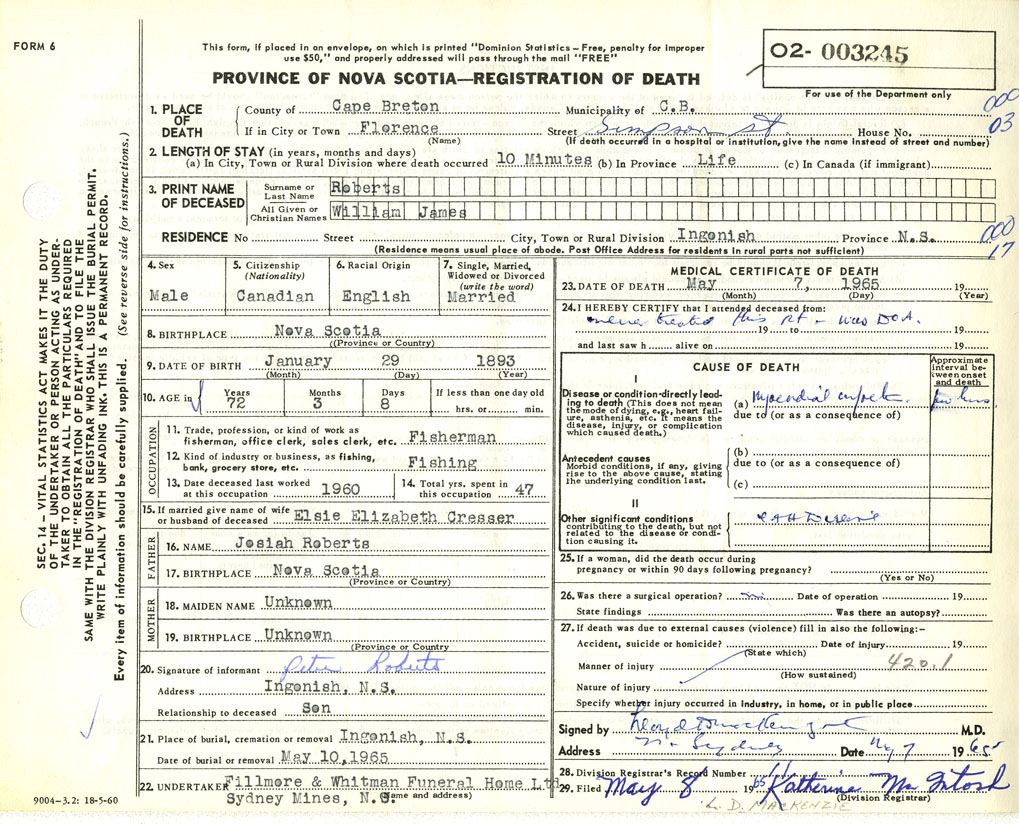 FORM 6
This form, if placed in an envelope, on which is printed "Dominion Statistics – Free, penalty for improper
use $50," and properly addressed will pass through the mail "FREE"
PROVINCE OF NOVA SCOTIA—REGISTRATION OF DEATH
02- 003245
For use of the Department only
000
03
1. PLACE OF DEATH
County of Cape Breton Municipality of C.B.
If in City or Town Florence Street Simpson St. House No.
(Name) (If death occurred in a hospital or institution, give the name instead of street and number)
2. LENGTH OF STAY (in years, months and days)
(a) In City, Town or Rural Division where death occurred 10 Minutes (b) In Province Life (c) In Canada (if immigrant)
3. PRINT NAME OF DECEASED
Surname or Last Name Roberts
All Given or Christian Names William James
000
17
RESIDENCE No Street City, Town or Rural Division Ingonish Province N.S.
(Residence means usual place of abode. Post Office Address for residents in rural parts not sufficient)
4. Sex
Male
5. Citizenship
(Nationality)
Canadian
6. Racial Origin
English
7. Single, Married,
Widowed or Divorced
(write the word)
Married
8. BIRTHPLACE Nova Scotia
(Province or Country)
9. DATE OF BIRTH January 29 1893
(Month) (Day) (Year)
10. AGE in Years 72 Months 3 Days 8 If less than one day old
hrs. or min.
OCCUPATION
11. Trade, profession, or kind of work as
fisherman, office clerk, sales clerk, etc. Fisherman
12. Kind of industry or business, as fishing,
bank, grocery store, etc. Fishing
13. Date deceased last worked
at this occupation 1960
14. Total yrs. spent in
this occupation 47
15. If married give name of wife
or husband of deceased Elsie Elizabeth Cresser
FATHER
16. NAME Josiah Roberts
17. BIRTHPLACE Nova Scotia
(Province or Country)
MOTHER
18. MAIDEN NAME Unknown
19. BIRTHPLACE Unknown
(Province or Country
20. Signature of informant Peter Roberts
Address Ingonish, N.S.
Relationship to deceased Son
21. Place of burial, cremation or removal Ingonish, N.S.
Date of burial or removal May 10, 1965
22. UNDERTAKER Fillmore & Whitman Funeral Home Ltd
Sydney Mines, N.S. (Name and address)
9004-3.2: 18-5-60
MEDICAL CERTIFICATE OF DEATH
23. DATE OF DEATH May 7, 1965 19
(Month) (Day) (Year)
24. I HEREBY CERTIFY that I attended deceased from:
never treated this pt - was DOA.
19 to 19
and last saw h alive on 19
CAUSE OF DEATH
Approximate
interval be-
tween onset
and death
I
Disease or condition directly lead-
ing to death (This does not mean
the mode of dying, e.g., heart fail-
ure, asthenia, etc. It means the
disease, injury, or complication
which caused death.)
(a) Myocardial infarct. few hours
due to (or as a consequence of)
Antecedent causes
Morbid conditions, if any, giving
rise to the above cause, stating
the underlying condition last.
(b)
due to (or as a consequence of)
(c)
II
Other significant conditions
contributing to the death, but not
related to the disease or condi-
tion causing it.
Disease
25. If a woman, did the death occur during
pregnancy or within 90 days following pregnancy?
(Yes or No)
26. Was there a surgical operation? no Date of operation 19
State findings Was there an autopsy?
27. If death was due to external causes (violence) fill in also the following:–
Accident, suicide or homicide? Date of injury 19
(State which)
Manner of injury 420.1
(How sustained)
Nature of injury
Specify whether injury occurred in industry, in home, or in public place
Signed by M.D.
Address N. Sydney Date May 7 1965
28. Division Registrar's Record Number 11
29. Filed May 8 1965 Katherine McIntosh
(Division Registrar)
L. D. MACKENZIE
SEC. 14 – VITAL STATISTICS ACT MAKES IT THE DUTY
OF THE UNDERTAKER OR PERSON ACTING AS UNDER-
TAKER TO OBTAIN ALL THE PARTICULARS REQUIRED
IN THE "REGISTRATION OF DEATH" AND TO FILE THE
SAME WITH THE DIVISION REGISTRAR WHO SHALL ISSUE THE BURIAL PERMIT.
WRITE PLAINLY WITH UNFADING INK. THIS IS A PERMANENT RECORD.
Every item of information should be carefully supplied. (See reverse side for instructions.)